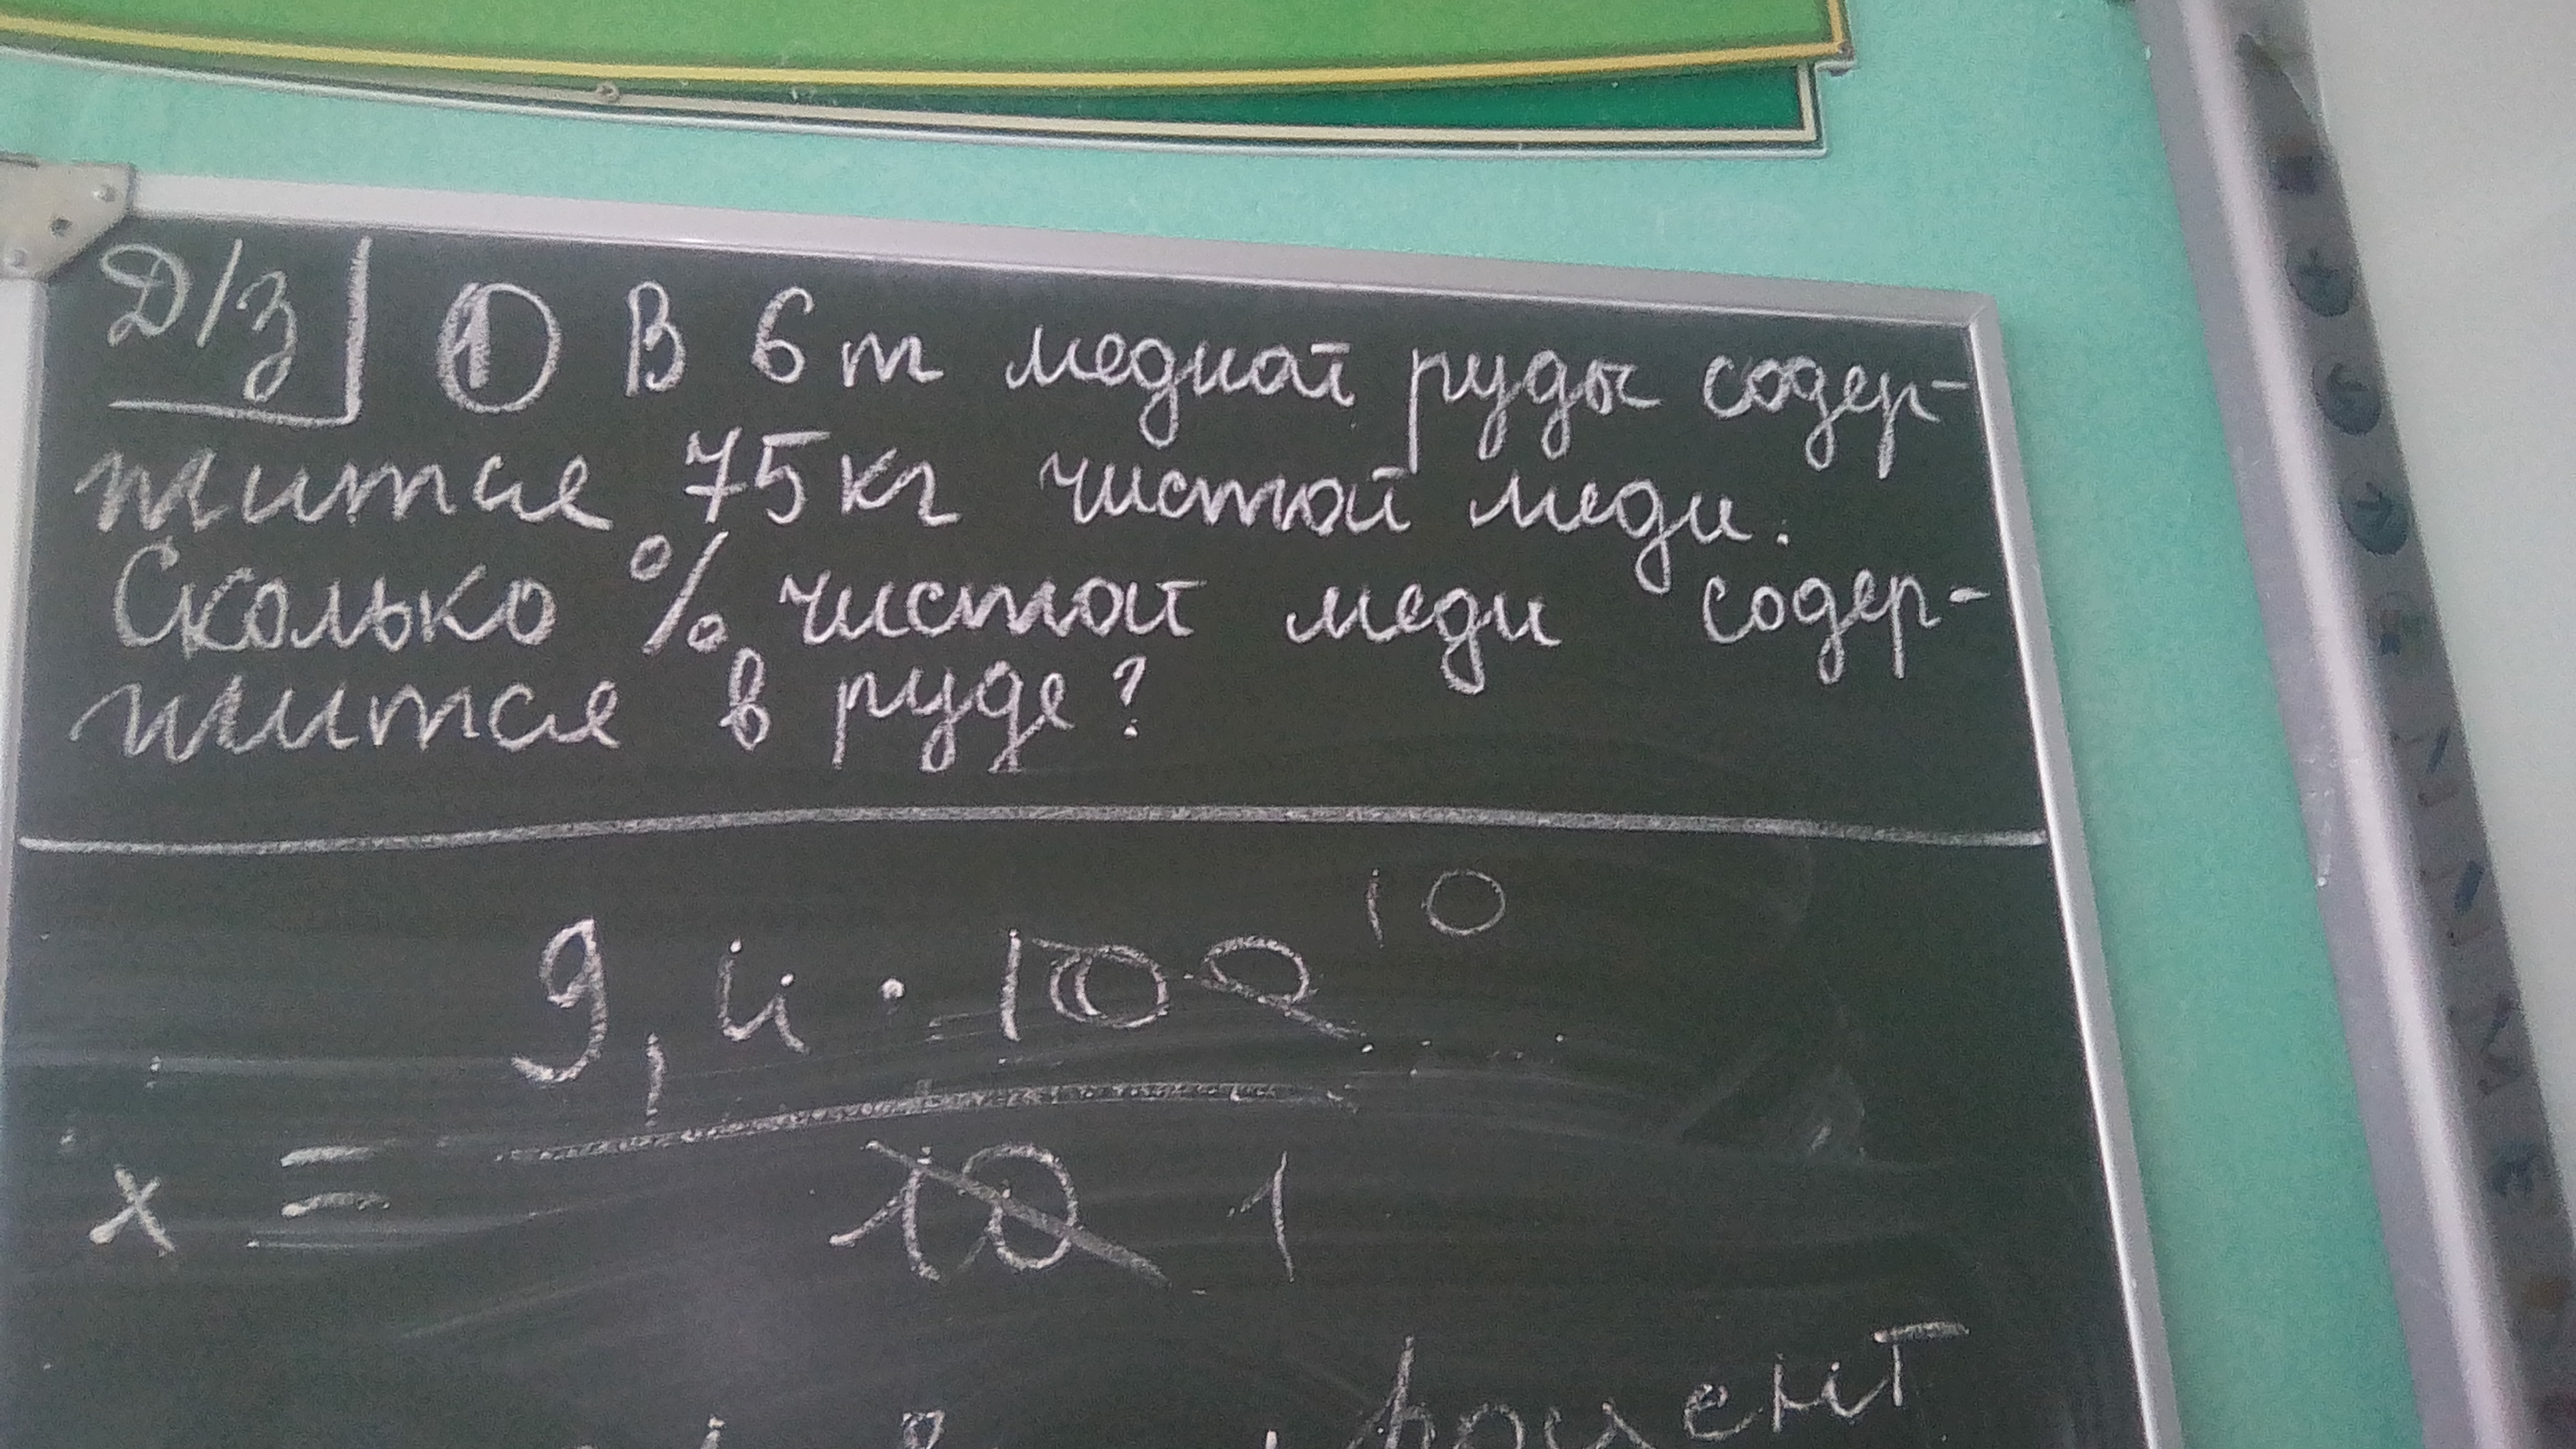 Д/з ① В 6 т медной руды содер-
жится 75 кг чистой меди.
Сколько % чистой меди содер-
жится в руде?
9,4 · 100 10
x =
10 1